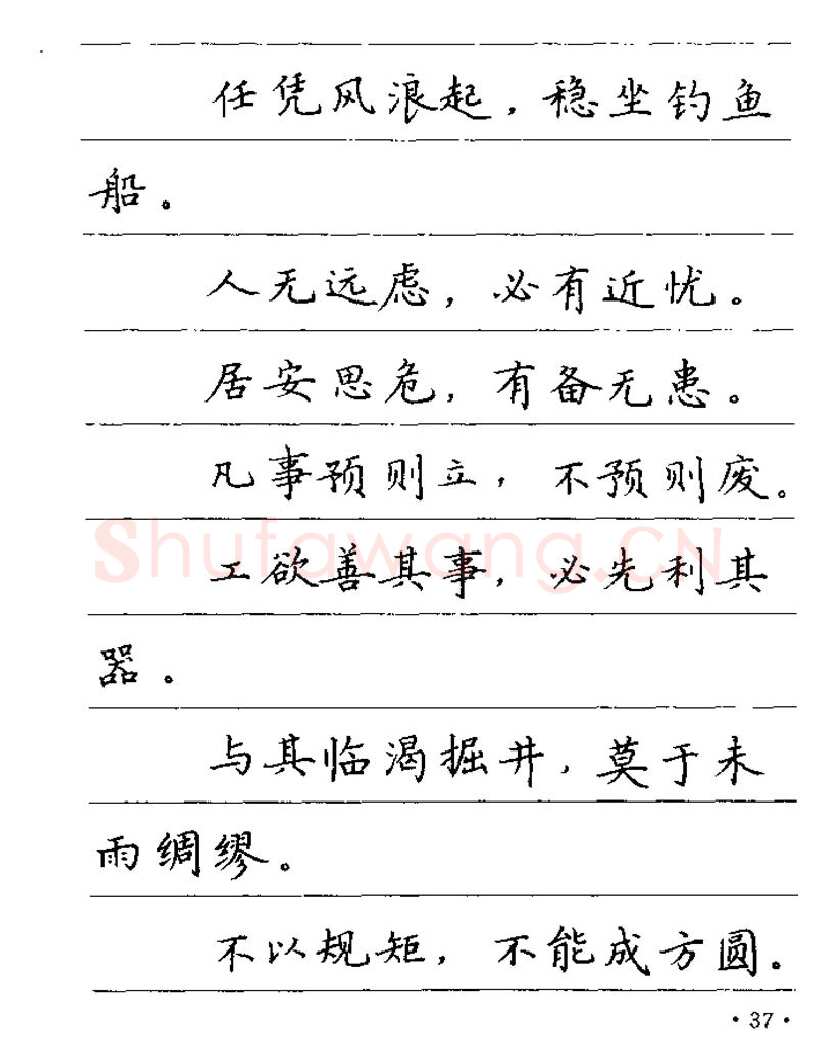 任凭风浪起，稳坐钓鱼
船。
人无远虑，必有近忧。
居安思危，有备无患。
凡事预则立，不预则废。
Shufawang.CN
工欲善其事，必先利其
器。
与其临渴掘井，莫于未
雨绸缪。
不以规矩，不能成方圆。
·37·